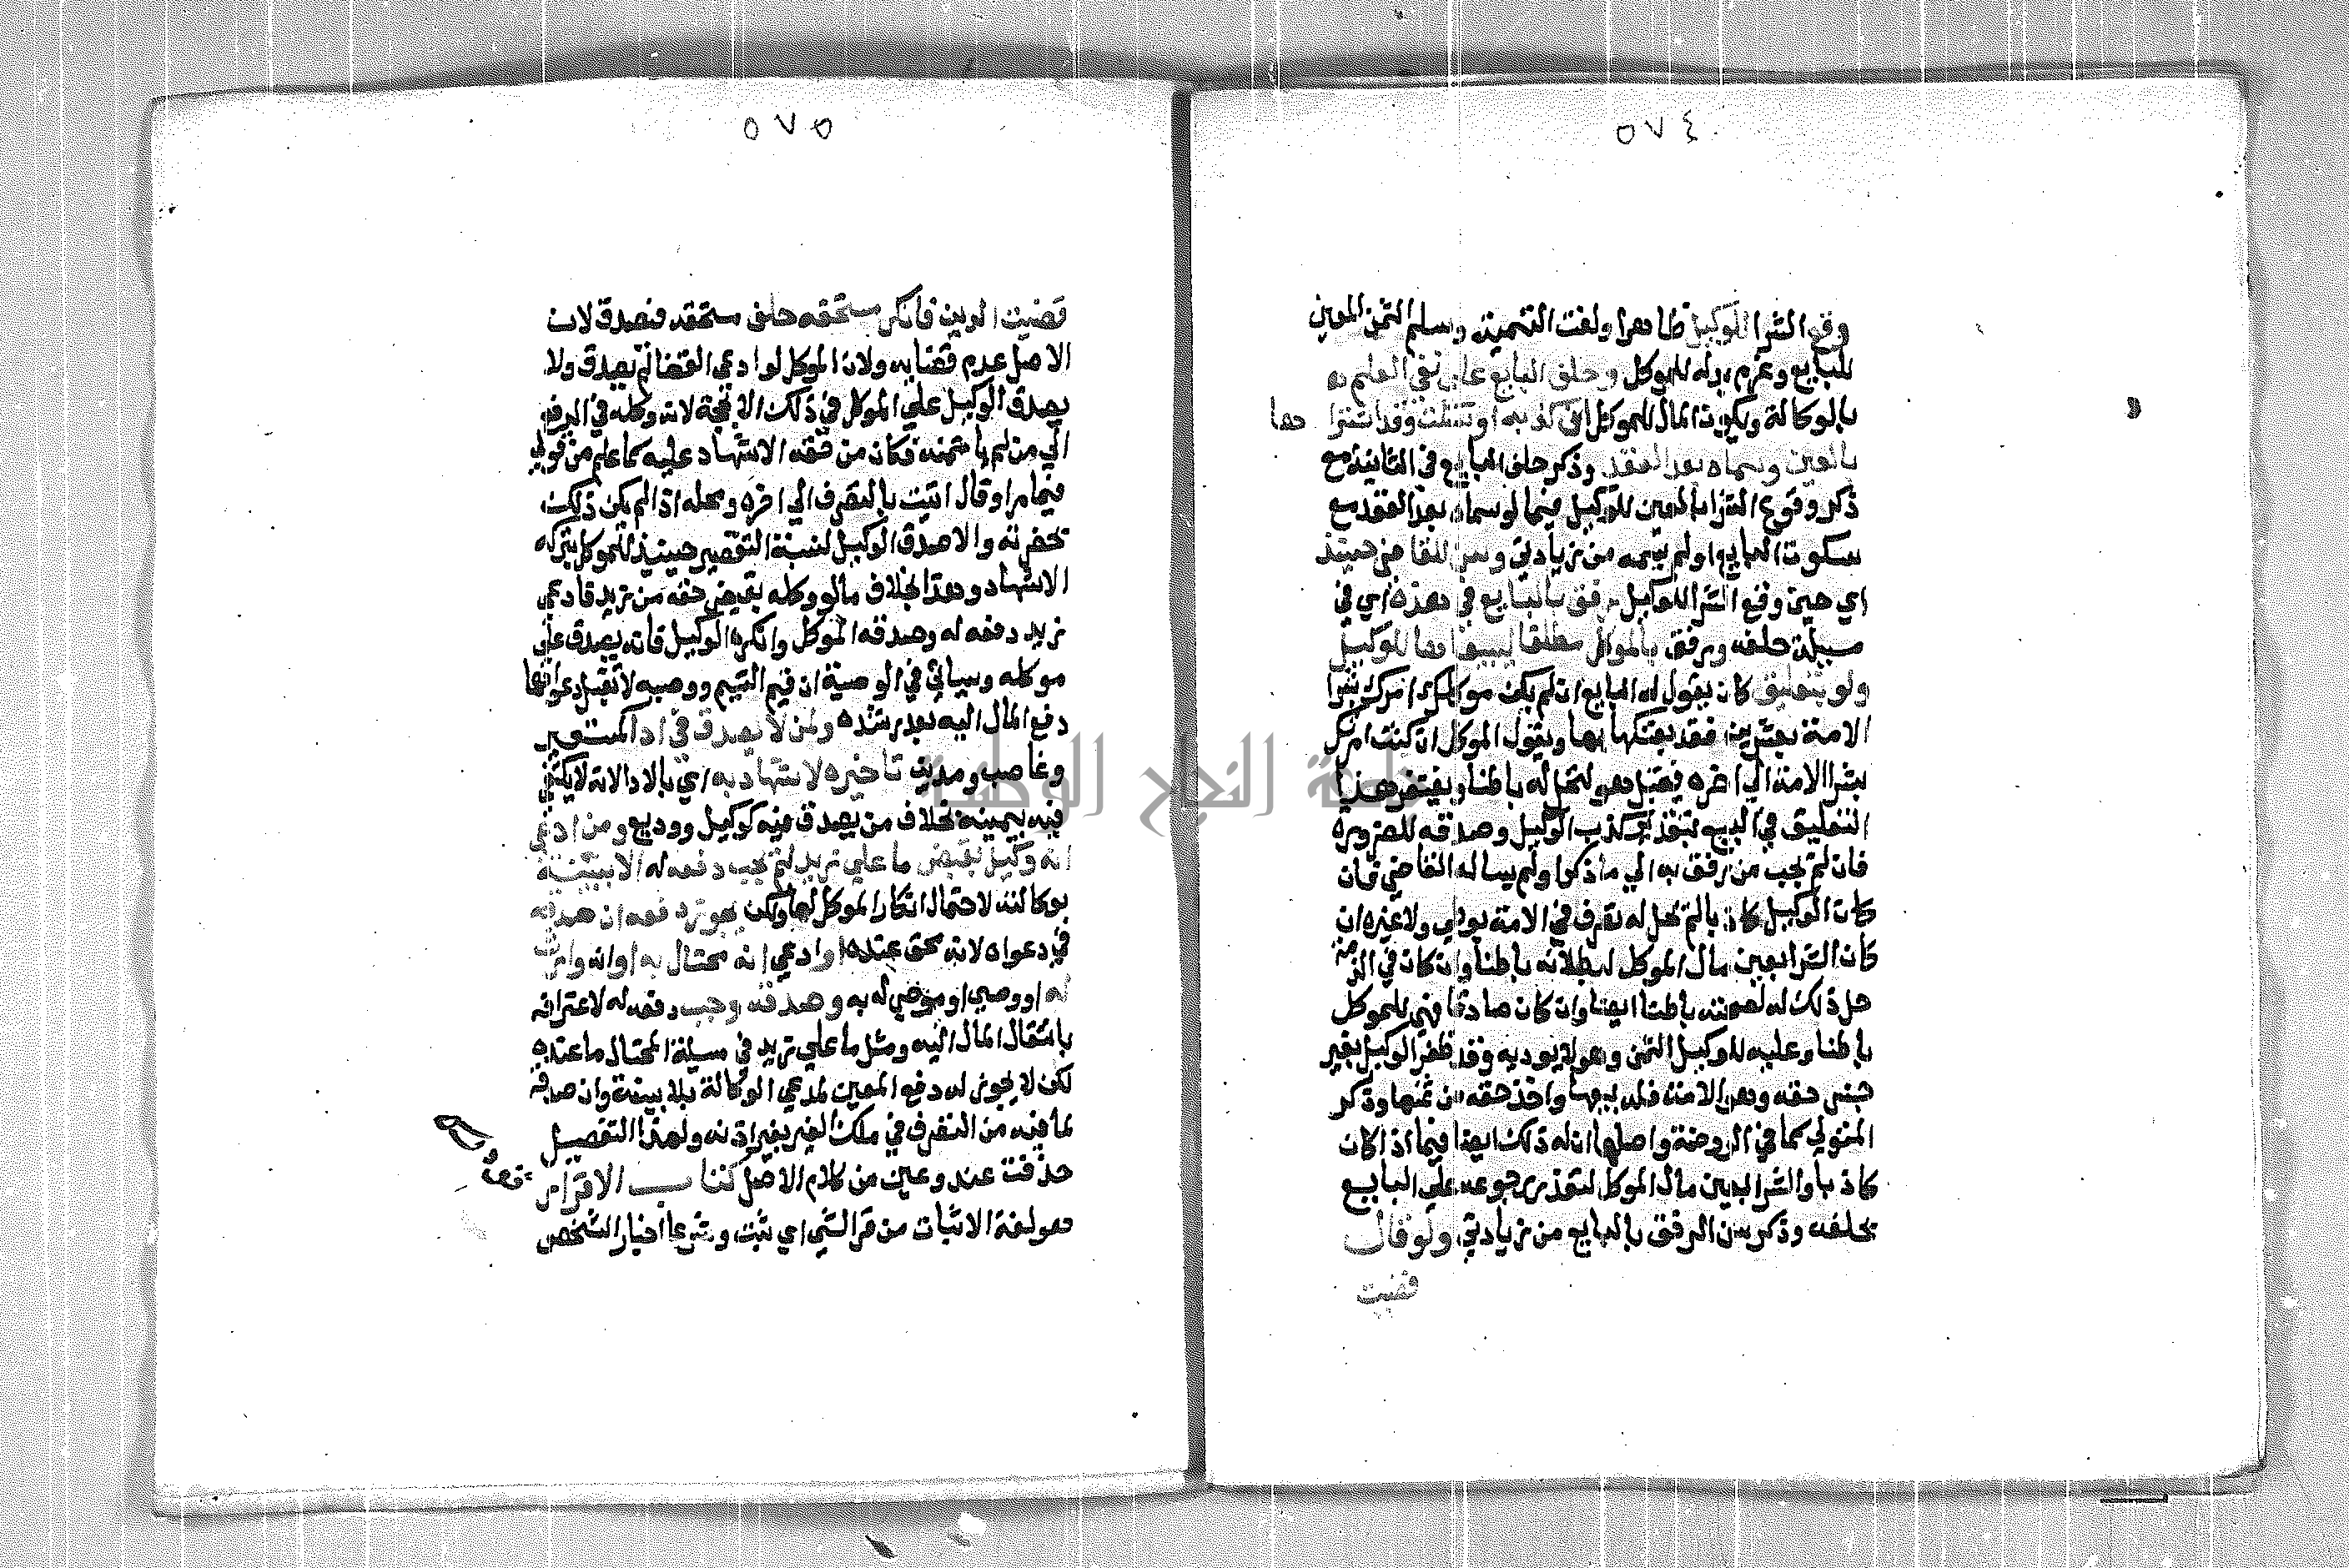 ٥٧٤
وقع الشرا للوكيل ظاهرا ولغت التسمية وسلم الثمن المعين
للبايع وغرم بدله للموكل وحلف البايع على نفي العلم
بالوكالة وكون المال للموكل ان كذبه او سكت وقد اشتراها
بالعين وسماه بعد العقد وذكر حلف البايع في الثانية مع
ذكر وقوع الشرا بالعين للوكيل فيما لو سماه بعد العقد مع
سكوت البايع او لم يسمه من زيادتي وسن للقاضي حينئذ
اي حين وقع الشرا للوكيل رفق بالبايع في هذه اي في
مسيلة حلفه ورفق بالموكل مطلقا ليبيعاها للوكيل
ولو بتعليق كان يقول له البايع ان لم يكن موكلك امرك بشرا
الامة بعشرين فقد بعتكها بها ويقول الموكل ان كنت امرتك
بشرا الامة الي اخره فيقبل هو لتحل له باطنا ويغتفر هذا
التعليق في البيع بتقدير كذب الوكيل وصدقه للضرورة
فان لم يجب من رفق به الي ما ذكر او لم يساله القاضي فان
كان الوكيل كاذبا لم تحل له تصرف في الامة بوطي ولا غيره ان
كان الشرا بعين مال الموكل لبطلانه باطنا وان كان في الذمة
حل ذلك له لصحته باطنا ايضا وان كان صادقا فهي للموكل
باطنا وعليه للوكيل الثمن وهو لا يوديه وقد ظفر الوكيل بغير
جنس حقه وهي الامة فله بيعها واخذ حقه من ثمنها وذكر
المتولي كما في الروضة واصلها ان له ذلك ايضا فيما اذا كان
كاذبا والشرا بعين مال الموكل لتعذر رجوعه علي البايع
بحلفه وذكر سن الرفق بالبايع من زيادتي ولو قال
قضيت
٥٧٥
قضيت الدين فانكر مستحقه حلف مستحقه فيصدق لان
الاصل عدم قضايه ولان الموكل لو ادعى القضا لم يصدق ولا
يصدق الوكيل علي الموكل في ذلك الا بحجة لانه وكله في الدفع
الي من لم ياتمنه فكان من حقه الاشهاد عليه كما علم من قولي
فيما مر او قال اتيت بالتصرف الي اخره ومحله اذا لم يكن ذلك
بحضرته والا صدق الوكيل لنسبة التقصير حينئذ للموكل بتركه
الاشهاد وهذا بخلاف ما لو وكله بقبض حقه من زيد فادعى
زيد دفعه له وصدقه الموكل وانكره الوكيل فانه يصدق علي
موكله وسياتي في الوصية ان قيم اليتيم ووصيه لا تقبل دعواهما
دفع المال اليه بعد رشده ولمن لا يصدق في اداء كمستعير
وغاصب ومدين تاخيره لاشهاد به اي بالاداء لانه لا يكتفي
فيه بيمينه بخلاف من يصدق فيه كوكيل ووديع ومن ادعى
انه وكيل بقبض ما علي زيد لم يجب دفعه له الا ببينة
بوكالته لاحتمال انكار الموكل لها ولكن يجوز دفعه ان صدقه
في دعواه لانه محق عنده او ادعي انه محتال به او انه وارث
له او وصي او موصي له به وصدقه وجب دفعه له لاعترافه
بانتقال المال اليه ومثل ما علي زيد في مسيلة المحتال ما عنده
لكن لا يجوز له دفع العين لمدعي الوكالة بلا بينة وان صدقه
لما فيه من التصرف في ملك الغير بغير اذنه ولهذا التفصيل
حذفت عند وعين من كلام الاصل كتاب الاقرار
هو لغة الاثبات من قر الشي اي ثبت وشرعا اخبار الشخص